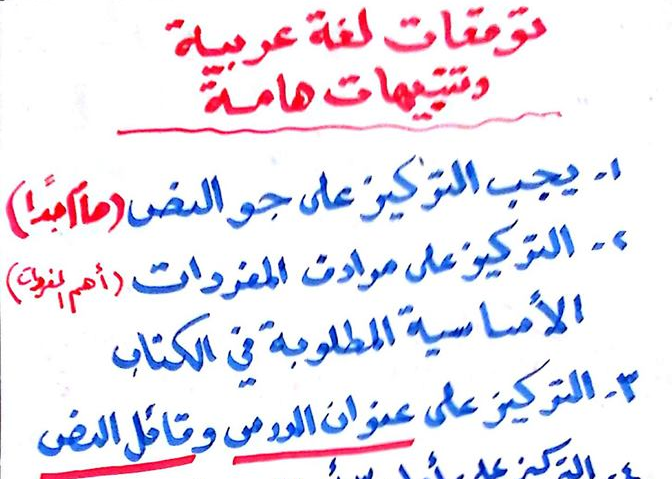 توقعات لغة عربية
وتنبيهات هامة
١- يجب التركيز على جو النص (هام جدًا)
٢- التركيز على مرادف المفردات (أهم المفردات)
الأساسية المطلوبة في الكتاب
٣- التركيز على عنوان الدرس وقائل النص
٤- التركيز على